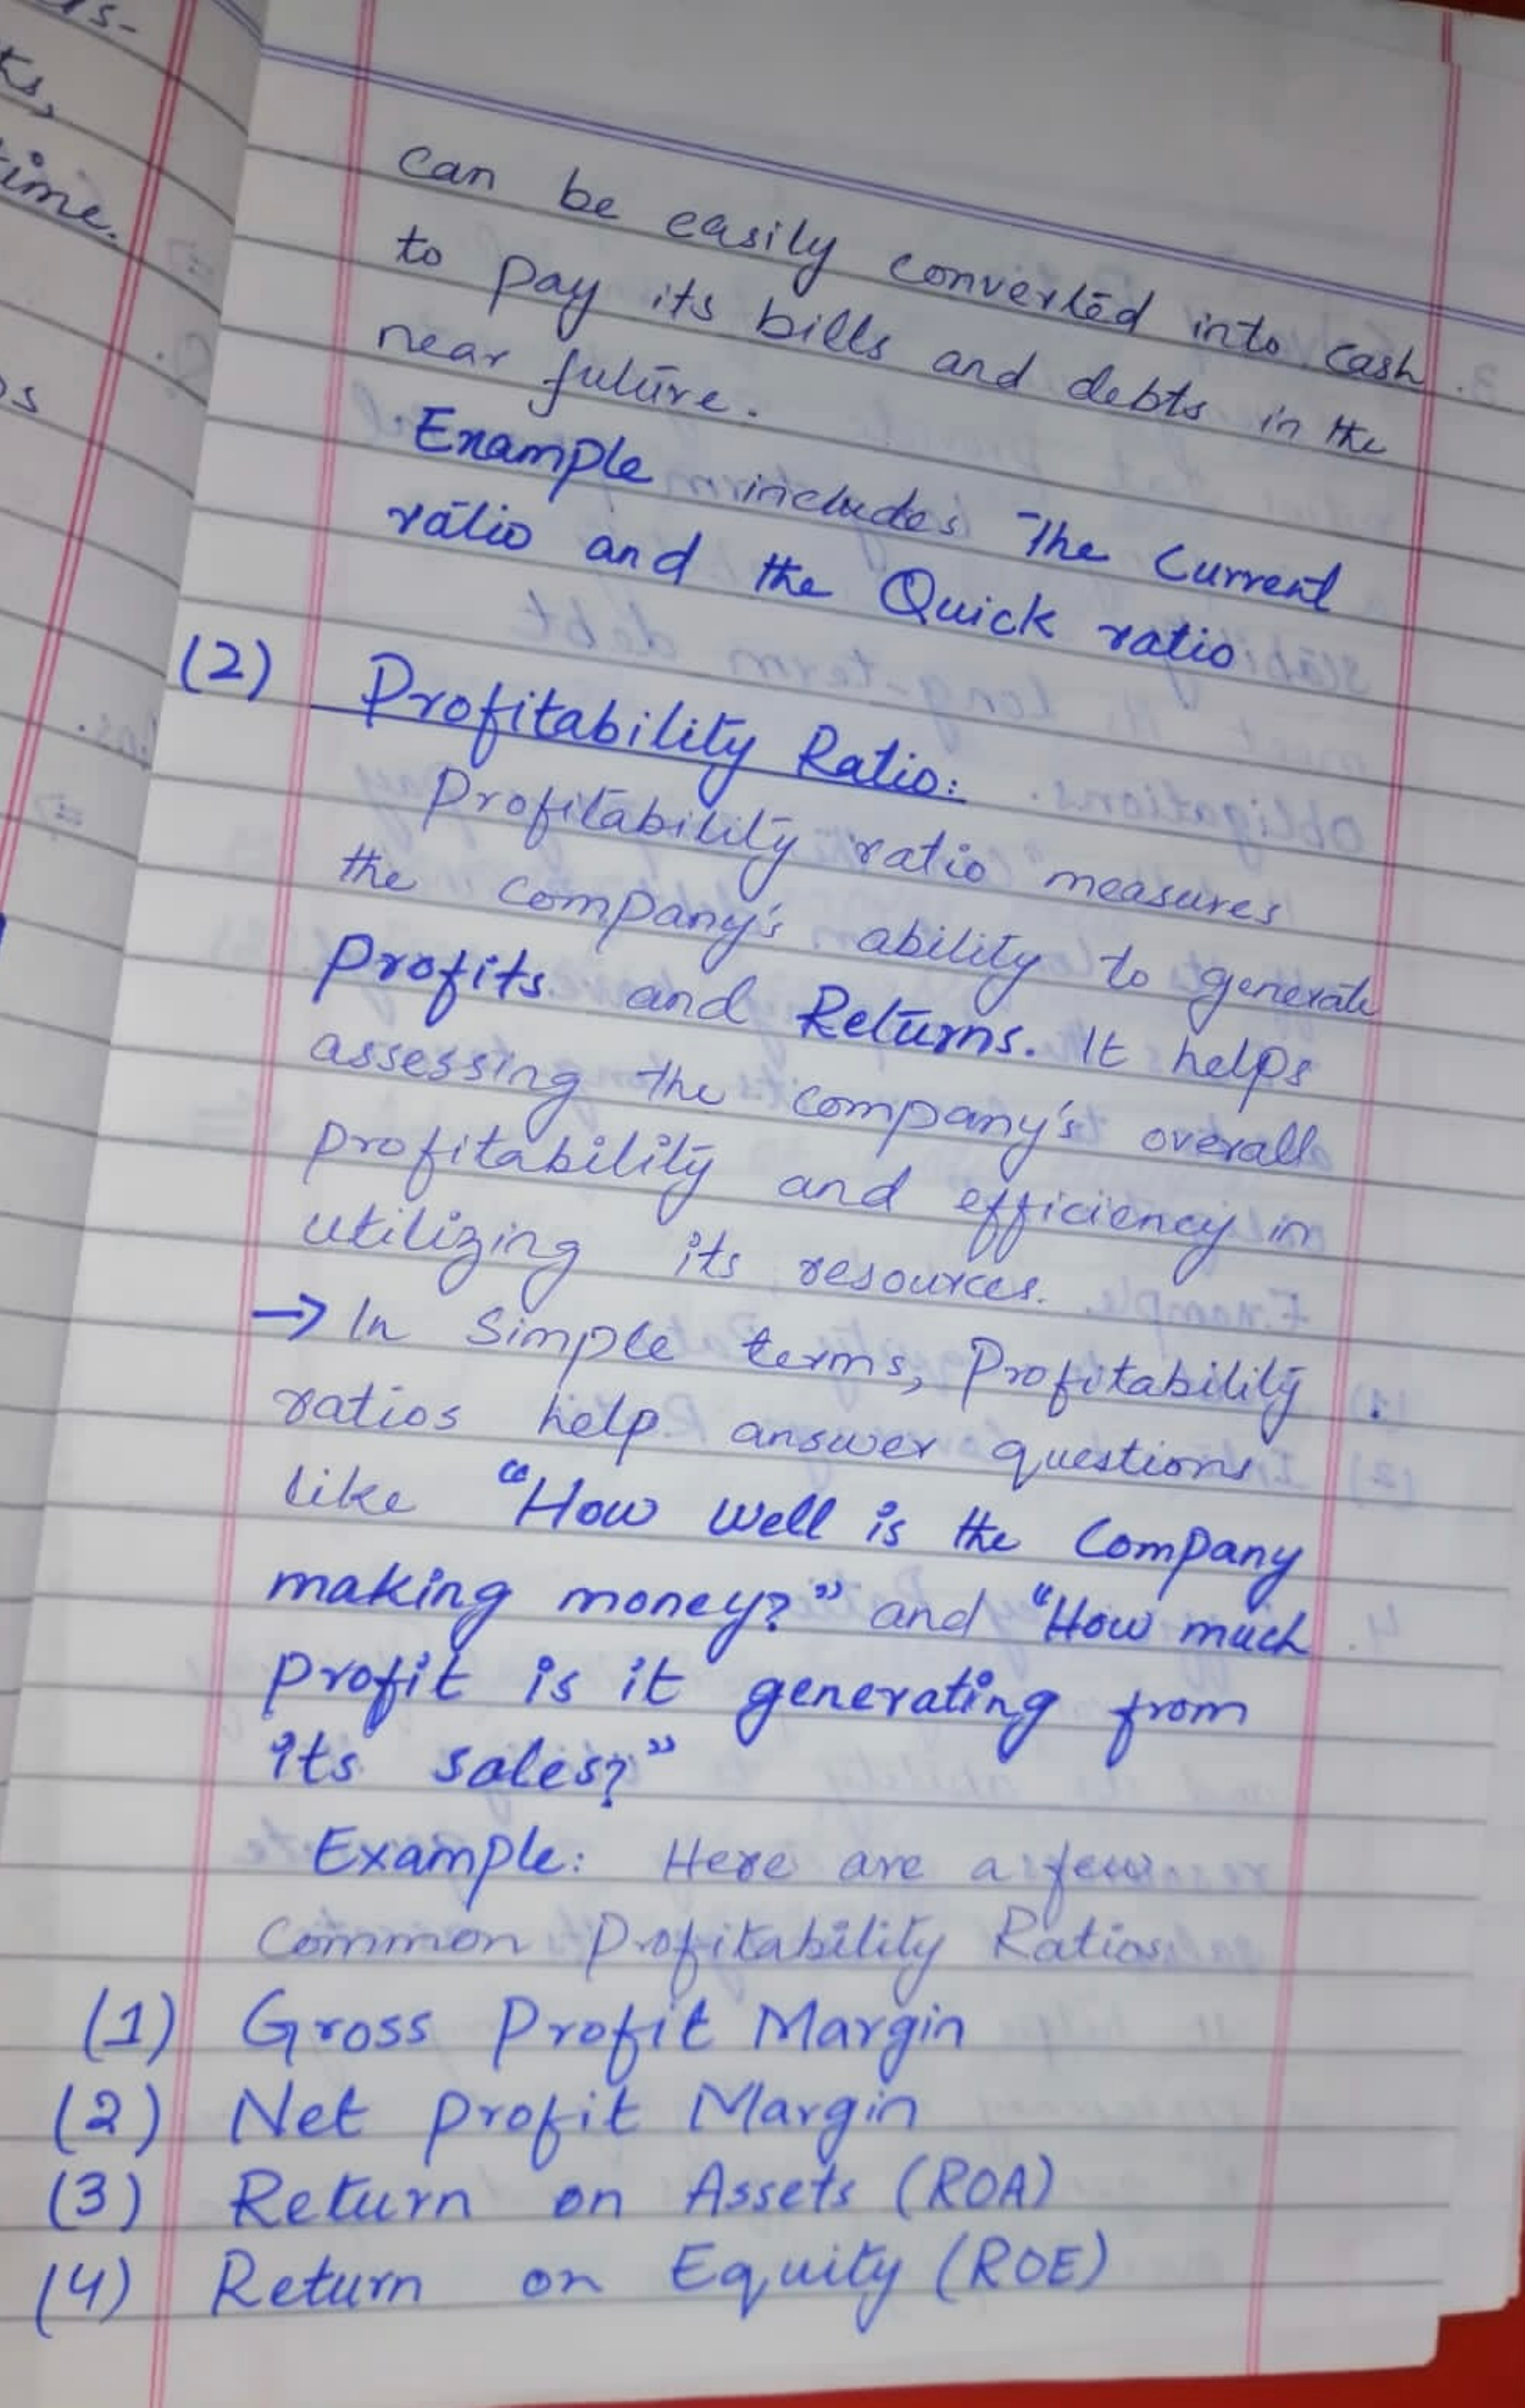 can be easily converted into cash
to pay its bills and debts in the
near future.
Example includes The Current
ratio and the Quick ratio
(2) Profitability Ratio:
Profitability ratio measures
the company's ability to generate
Profits and Returns. It helps
assessing the company's overall
profitability and efficiency in
utilizing its resources.
→ In Simple terms, Profitability
ratios help answer questions
like "How well is the Company
making money?" and "How much
profit is it generating from
its sales?"
Example: Here are a few
Common Profitability Ratios
(1) Gross Profit Margin
(2) Net profit Margin
(3) Return on Assets (ROA)
(4) Return on Equity (ROE)